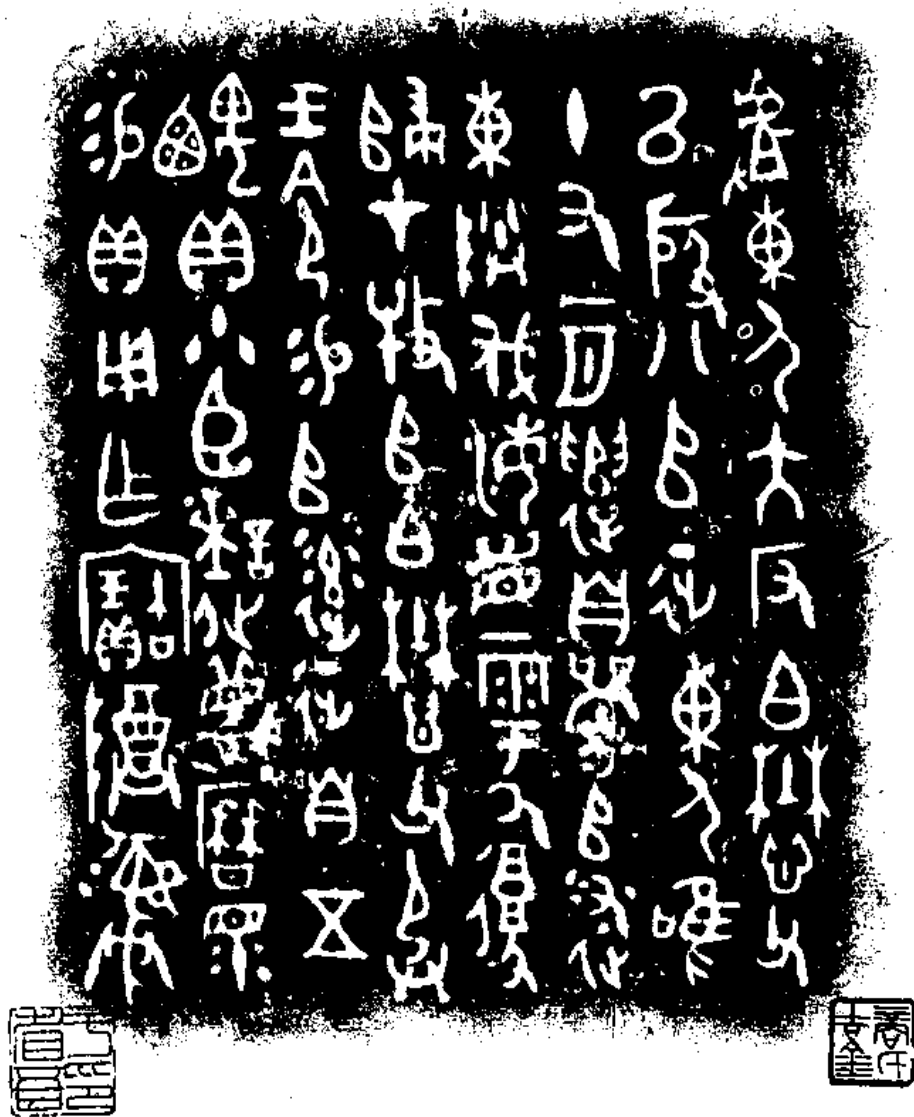 𠭯東夷大反白懋父
以殷八𠂤征東夷唯
十又一月遣自𠂤述
東伐海眉雩厥復
歸才牧𠂤白懋父承
王令易𠂤達征自五
齵貝小臣謎蔑曆眔
易貝用乍寶尊彝